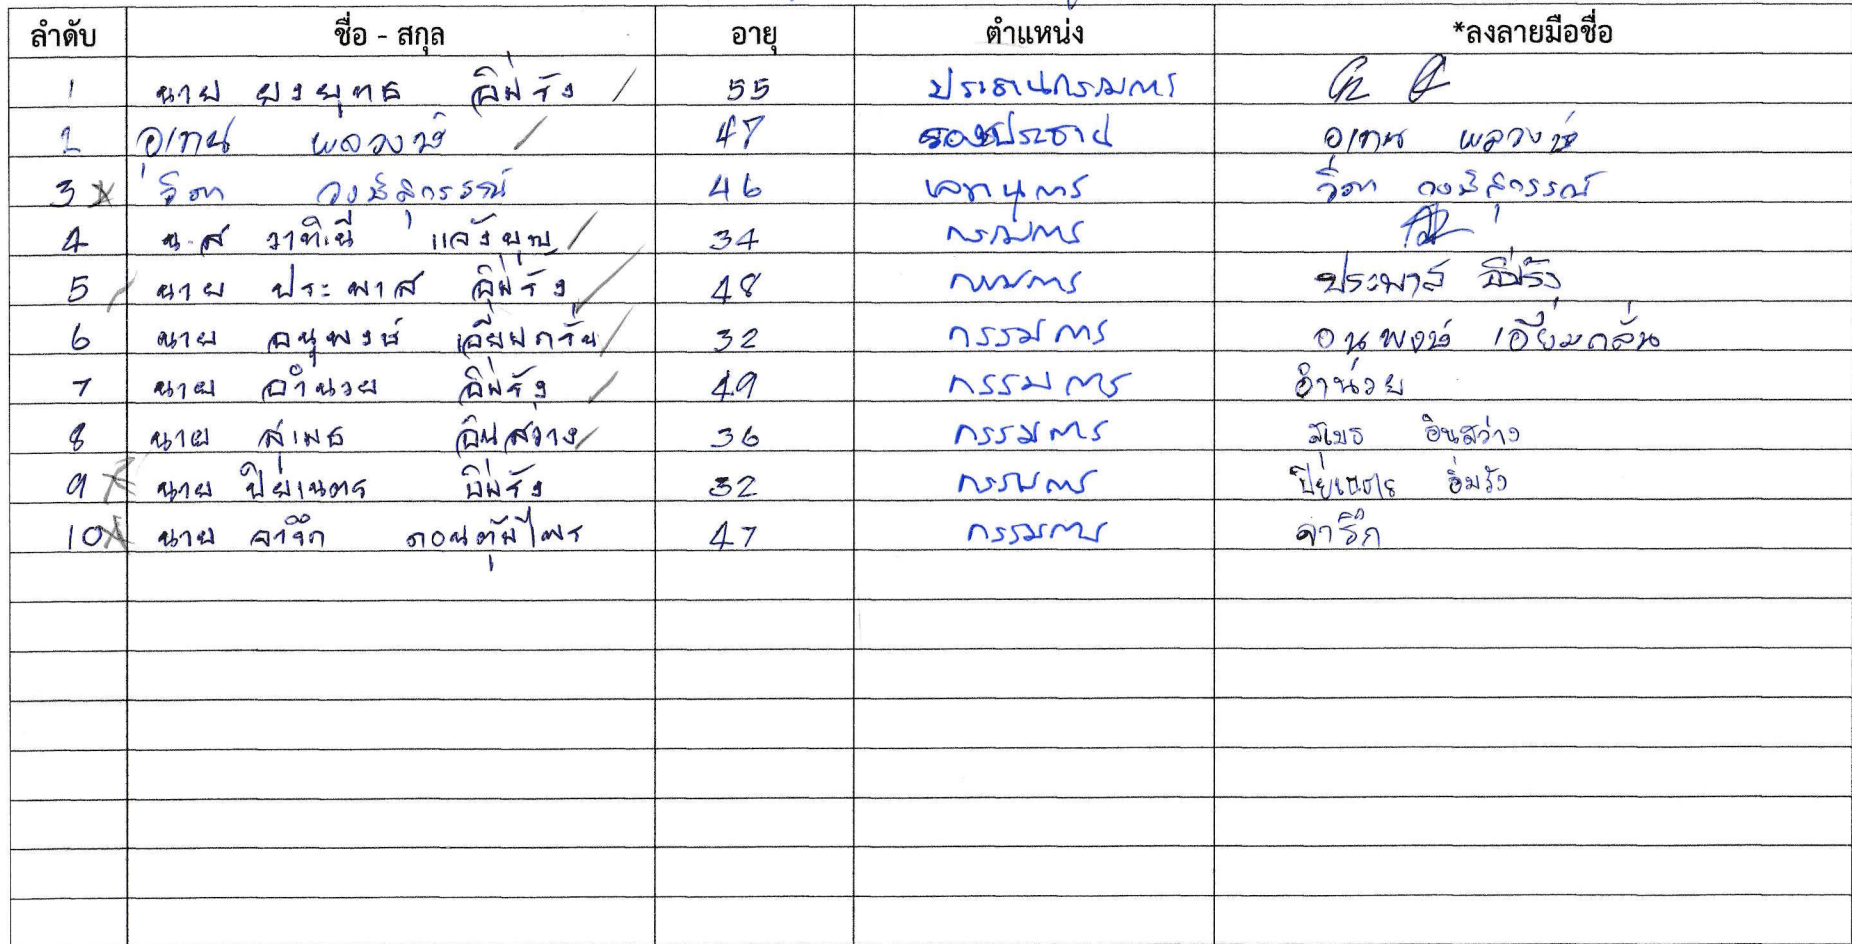 ลำดับ ชื่อ - สกุล อายุ ตำแหน่ง *ลงลายมือชื่อ
1 นาย ยงยุทธ อิ่มรัง / 55 ประธานกรรมการ
2 อุเทน พลวงษ์ / 47 รองประธาน อุเทน พลวงษ์
3 วงษ์สุวรรณ์ 46 เลขานุการ วงษ์สุวรรณ์
4 น.ส วาทินี แจ้งยุบ / 34 กรรมการ
5 นาย ประพาส อิ่มรัง / 48 กรรมการ ประพาส อิ่มรัง
6 นาย อนุพงษ์ เอี่ยมกลั่น / 32 กรรมการ อนุพงษ์ เอี่ยมกลั่น
7 นาย อำนวย อิ่มรัง / 49 กรรมการ อำนวย
8 นาย สุเมธ อินสว่าง / 36 กรรมการ สุเมธ อินสว่าง
9 นาย ปิยเนตร อิ่มรัง 32 กรรมการ ปิยเนตร อิ่มรัง
10 นาย จารึก ดอนตุ้มไพร 47 กรรมการ จารึก